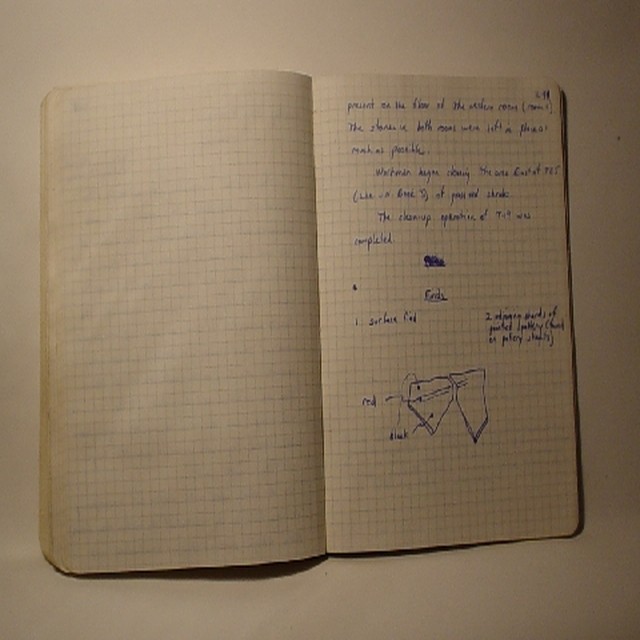 present on the floor of the western room (room 1).
The stones in both rooms were left in place as
much as possible.
Workmen began clearing the area East of
(see in
of
The clean-up operation of was
completed.
Finds
1. surface find
2 adjoining sherds of
painted pottery (found
on pottery sherds)
red
black